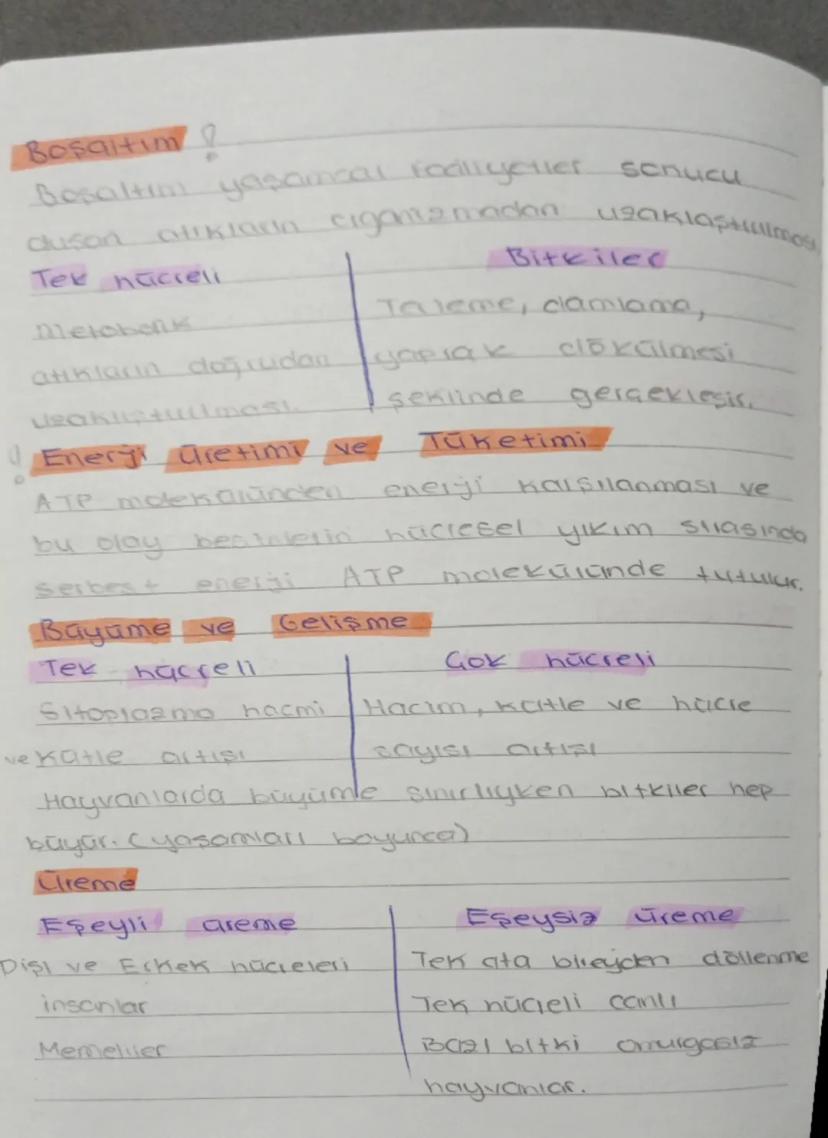 Boşaltım !
Boşaltım yaşamsal faaliyetler sonucu
oluşan atıkların organizmadan uzaklaştırılması
Tek hücreli
Bitkiler
Metabolik
atıkların doğrudan
uzaklaştırılması.
Terleme, damlama,
yaprak dökülmesi
şeklinde gerçekleşir.
! Enerji üretimi ve Tüketimi
ATP molekülünden enerji karşılanması ve
bu olay besinlerin hücresel yıkım sırasında
serbest enerji ATP molekülünde tutulur.
Büyüme ve Gelişme
Tek hücreli
Çok hücreli
Sitoplazma hacmi
ve kütle artışı
Hacim, kütle ve hücre
sayısı artışı
Hayvanlarda büyüme sınırlıyken bitkiler hep
büyür. (yaşamları boyunca)
Üreme
Eşeyli üreme
Eşeysiz üreme
Dişi ve Erkek hücreleri
insanlar
Memeliler
Tek ata bireyden döllenme
Tek hücreli canlı
Bazı bitki omurgasız
hayvanlar.